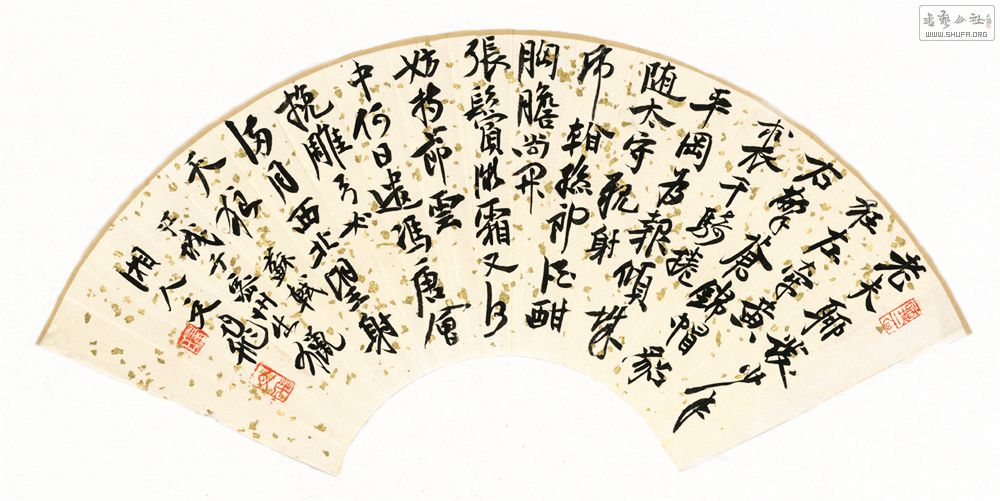 老夫聊發少年
狂左牽黃
右擎蒼錦帽貂
裘千騎捲
平岡為報傾城
随太守親射
虎看孫郎酒酣
胸膽尚開
張鬢微霜又何
妨持節雲
中何日遣馮唐會
挽雕弓如
滿月西北望射
天狼蘇軾
江城子密州出獵
湘人
書藝公社
WWW.SHUFA.ORG